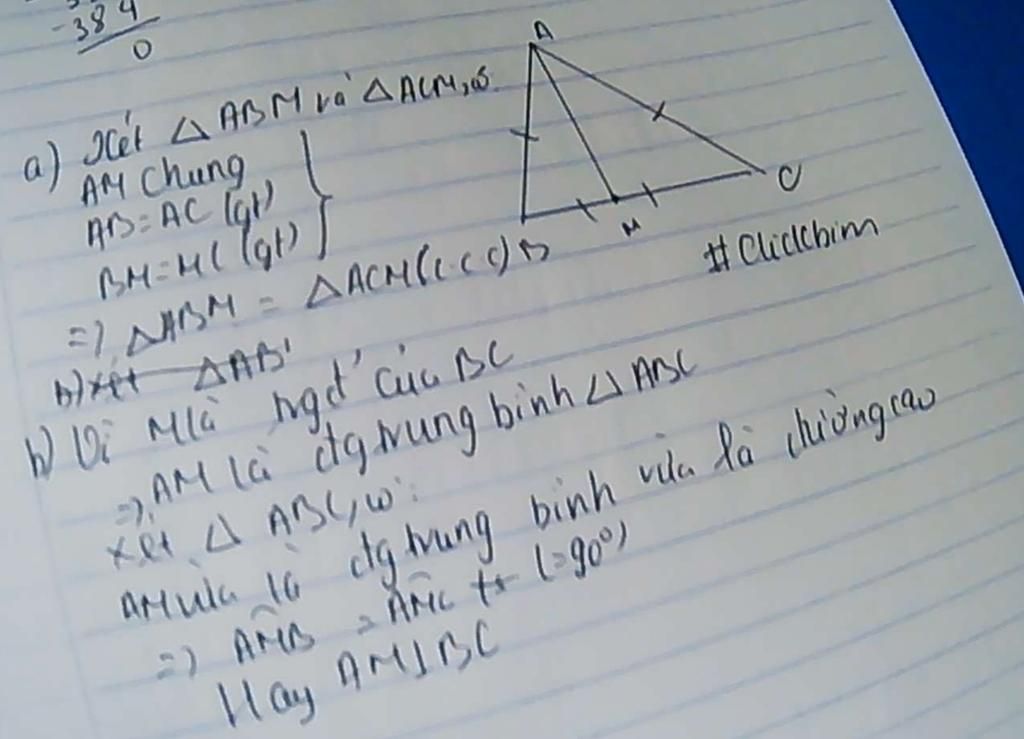 -384
0
A
a) Xét △ ABM và △ACM, có.
AM chung
AB = AC (gt)
BM = MC (gt)
=> △ABM = △ACM (c.c.c)
B
M
C
#Clickbim
b) xét △AB
b) Vì M là trgđ' của BC
=> AM là đg trung bình △ ABC
xét △ ABC, có:
AM vừa là đg trung bình vừa là đường cao
=> AMB = AMC (=90°)
Hay AM⊥BC